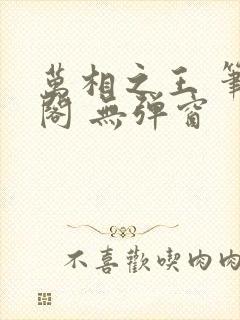 萬相之王 筆
閣 無彈窗
不喜歡喫肉肉